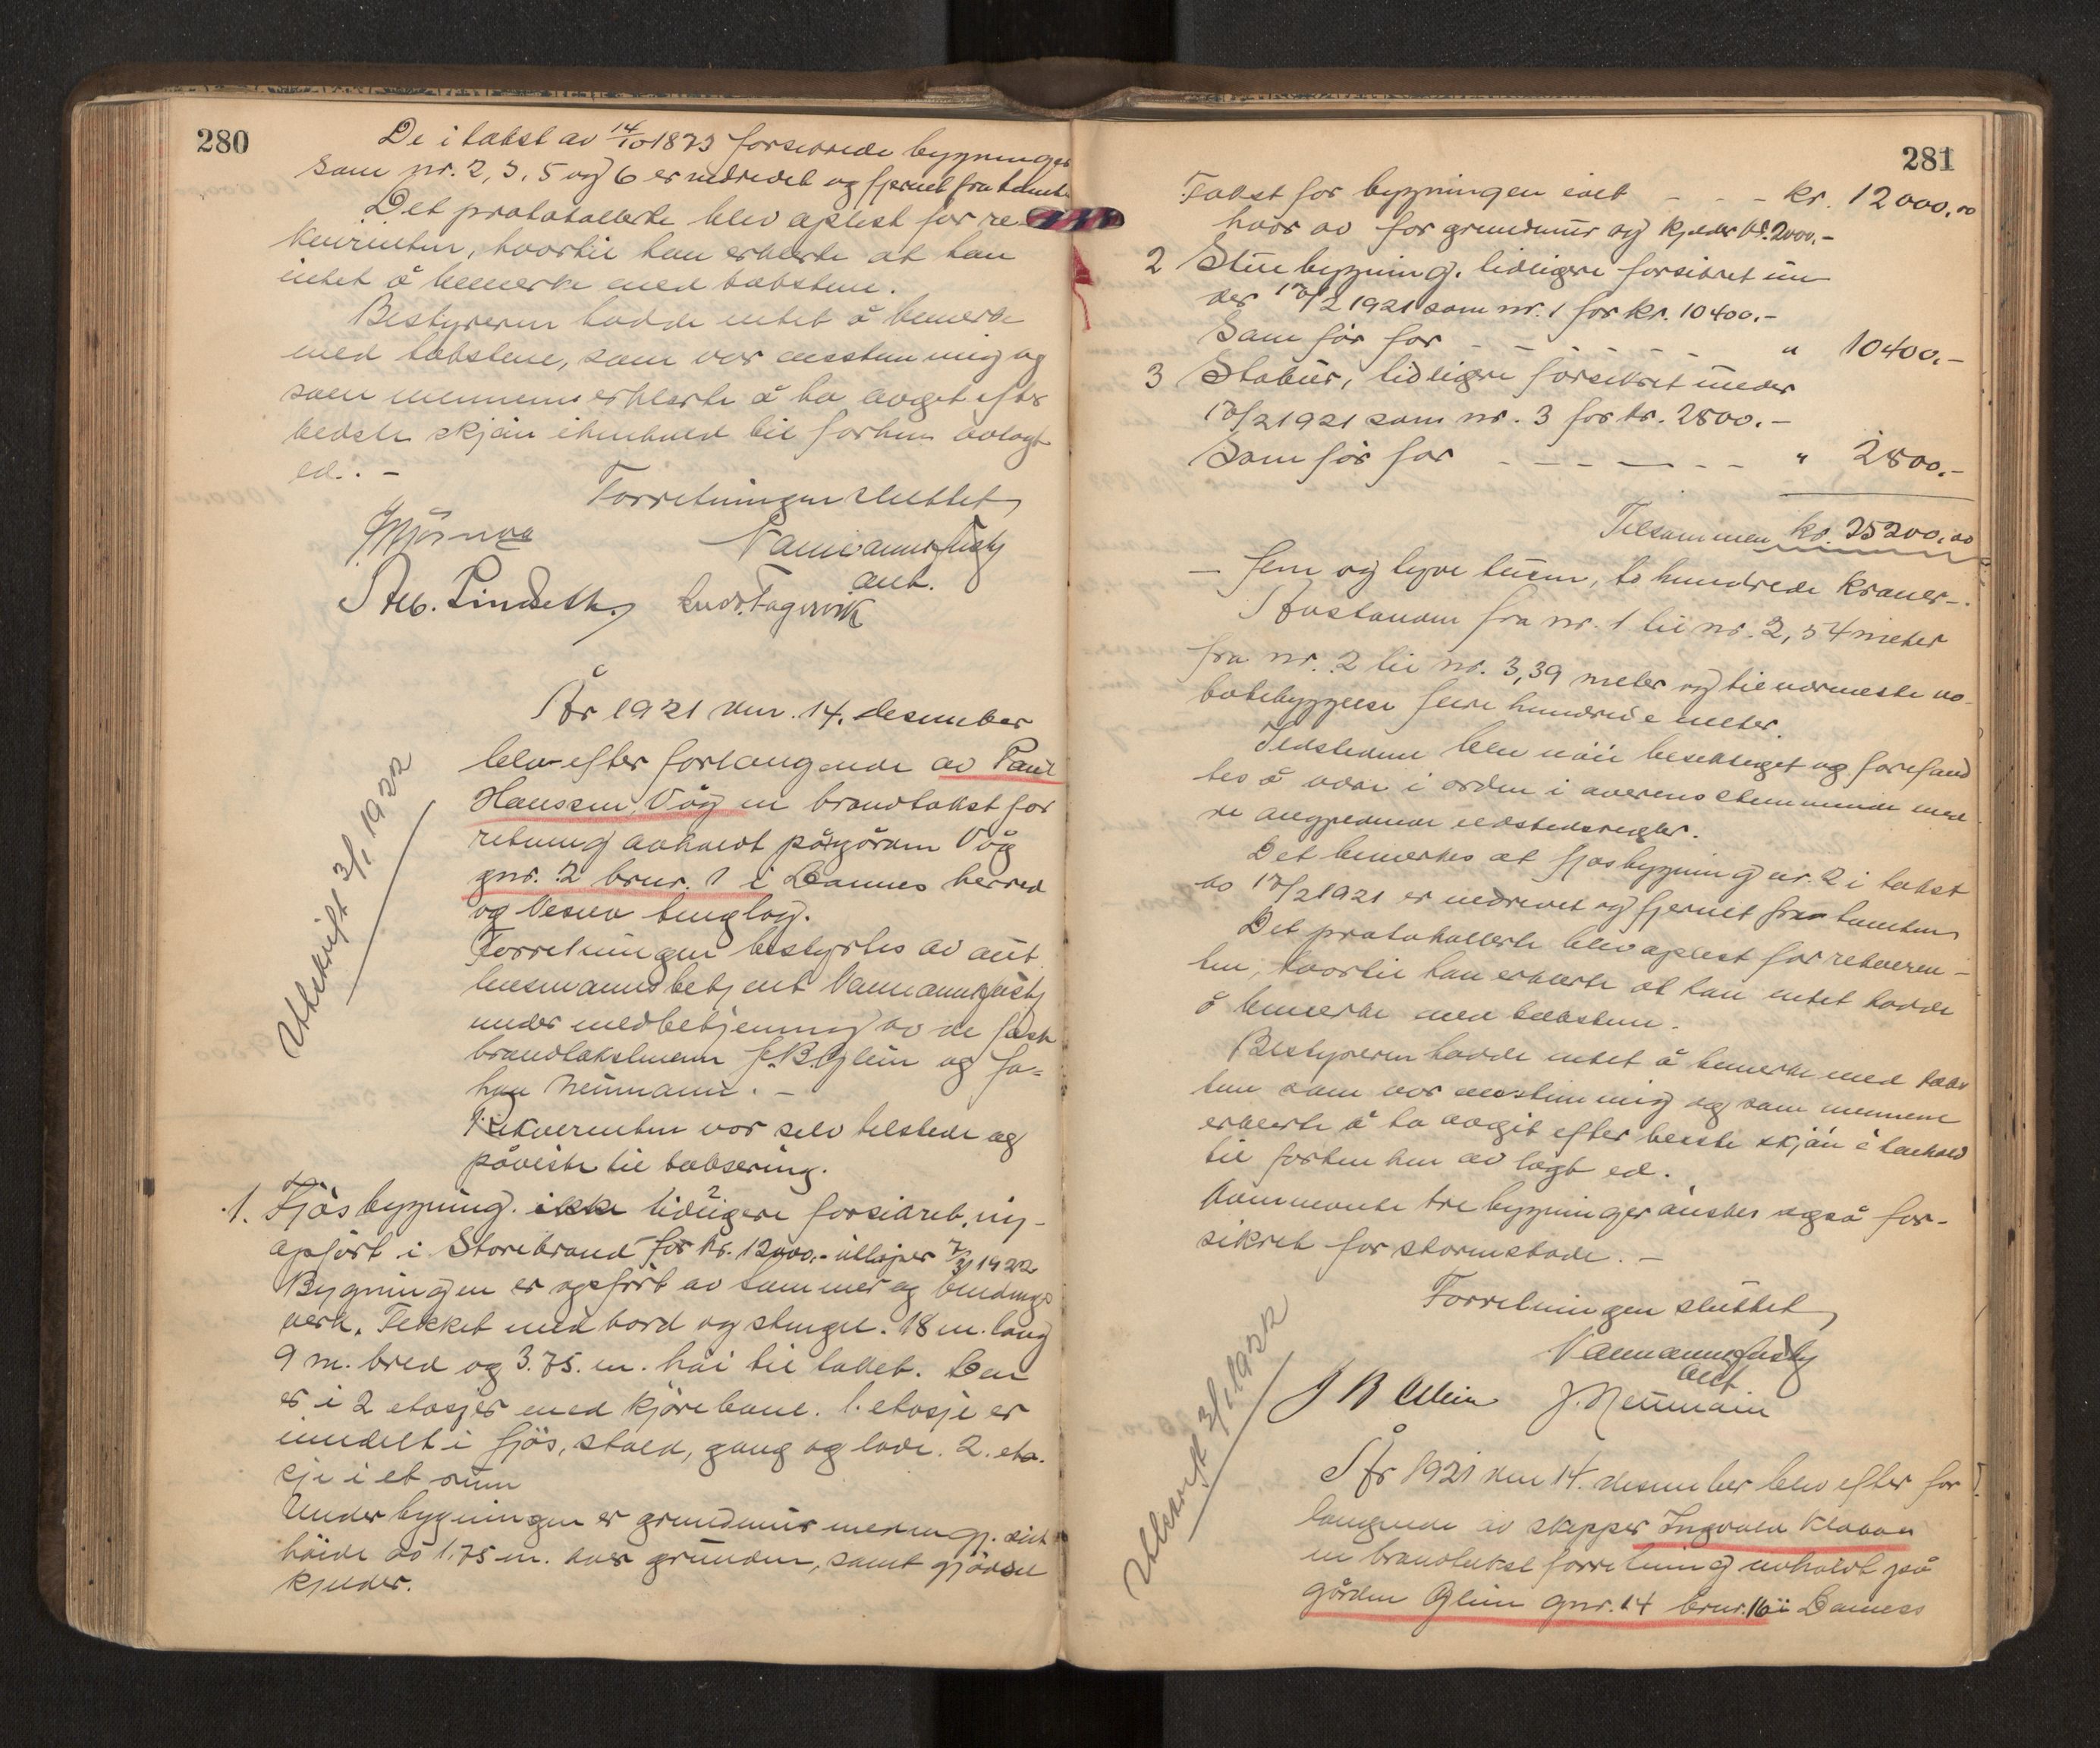 280
De i takst av 14/10 1873 forsikrede bygninger
som nr. 2, 3, 5 og 6 er nedrevet og fjernet fra tomte
Det protokollerte blev oplest for re-
kvirenten, hvortil han erklærte at han
intet å bemerke med taksten.
Bestyreren hadde intet å bemerke
med takstene, som var enstemmig og
som mennene erklærte å ha avgit efter
bedste skjøn i henhold til forhen avlagt
ed. -
Forretningen sluttet
aut.
Seb. Lindseth. Ludv. Fagervik
Utskrift 3/1 1922
År 1921 den 14. desember
blev efter forlangende av Paul
Hanssen, Våg en brandtakst for
retning avholdt på gården Våg
gnr. 2 brnr. 1 i Dønnes herred
og Nesna tinglag.
Forretningen bestyrtes av aut.
lensmannsbetjent
under medbetjening av de faste
brandtakstmenn J. B. Glein og Jo=
han Neumann. -
Rekvirenten var selv tilstede og
påviste til taksering.
1. Fjøsbygning. ikke tidligere forsikret, ny-
opført i Storebrand for kr. 12000.- utløper 7/3 1922
Bygningen er opført av tømmer og bindings
verk. Tekket med bord og stengel. 18 m. lang
9 m. bred og 3.75. m. høi til taket. Den
er i 2 etasjer med kjørebane. 1. etasje er
inndelt i fjøs, stald, gang og lade. 2. eta-
sje i et rum
Under bygningen er grundmur med en gj. snit
høide av 1.75 m. over grunden, samt gjødsel
kjelder.
281
Takst for bygningen ialt - - - kr. 12000,00
hvor av for grundmur og kjelder kr. 2000.-
2 Stuebygning. tidligere forsikret un
der 17/2 1921 som nr. 1 for kr. 10400.-
Som før for - - - - - " 10400.-
3 Stabur, tidligere forsikret under
17/2 1921 som nr. 3 for kr. 2800.-
Som før for - - - - - - " 2800.-
Tilsammen kr. 25200,00
- fem og tyve tusen, to hundrede kroner -.
Avstanden fra nr. 1 til nr. 2, 54 meter
fra nr. 2 til nr. 3, 39 meter og til nærmeste na-
bobebyggelse flere hundrede meter.
Ildstedene blev nøie besiktiget og forefand
tes å være i orden i overensstemmende med
de angjeldende ildstedsregler.
Det bemerkes at fjøsbygning nr. 2 i takst
av 17/2 1921 er nedrevet og fjernet fra tomten
Det protokollerte blev oplest for rekviren-
ten, hvortil han erklærte at han intet hadde
å bemerke med taksten.
Bestyreren hadde intet å bemerke med tak
sten som var enstemmig og som mennene
erklærte å ha avgit efter beste skjøn i henhold
til forhen hen av lagt ed.
tre bygninger ønskes også for-
sikret for stormskade. -
Forretningen sluttet
aut
J B Glein J. Neumann
Utskrift 3/1 1922
År 1921 den 14. desember blev efter for
langende av skipper Ingvald Klavan
en brandtakst forretning avholdt på
gården Glein gnr. 14 brnr. 16 i Dønnes